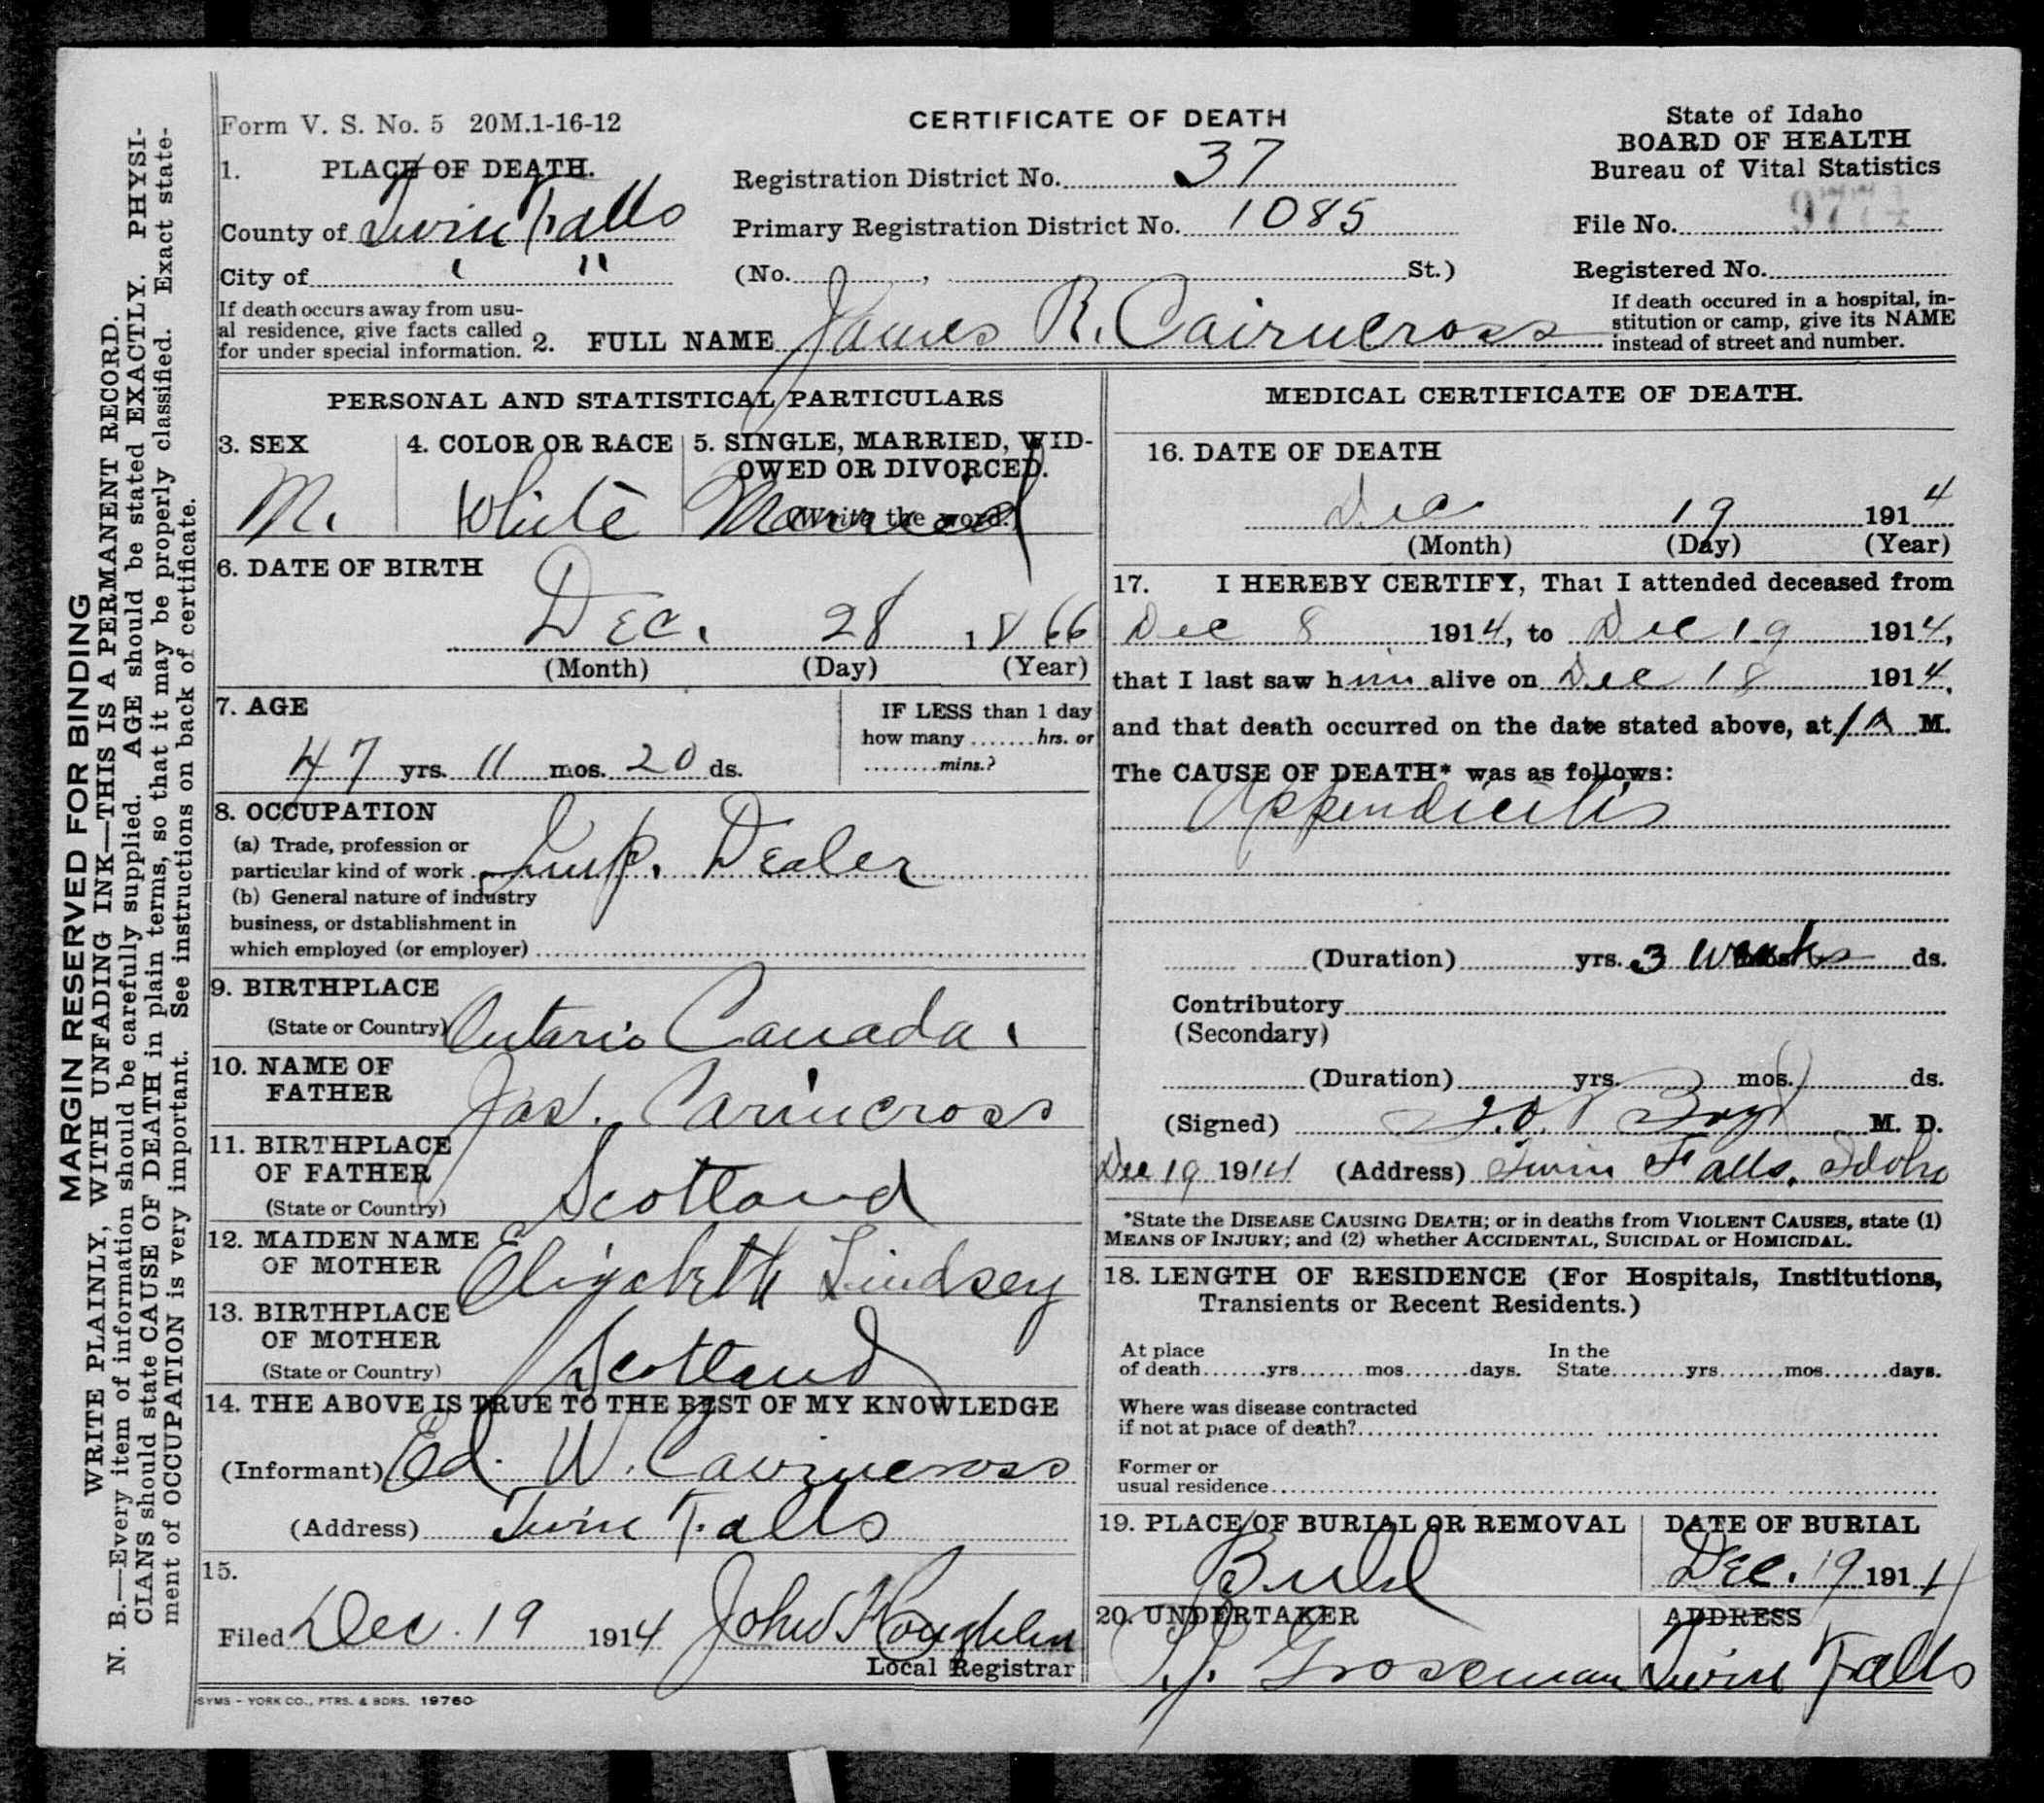 Form V. S. No. 5 20M.1-16-12
CERTIFICATE OF DEATH
State of Idaho
BOARD OF HEALTH
Bureau of Vital Statistics
1. PLACE OF DEATH.
Registration District No. 37
County of Twin Falls
Primary Registration District No. 1085
File No.
City of " "
(No. , St.)
Registered No.
If death occurs away from usu-
al residence, give facts called
for under special information.
2. FULL NAME James R. Cairncross
If death occured in a hospital, in-
stitution or camp, give its NAME
instead of street and number.
PERSONAL AND STATISTICAL PARTICULARS
3. SEX
M.
4. COLOR OR RACE
White
5. SINGLE, MARRIED, WID-
OWED OR DIVORCED.
(Write the word.)
Married
6. DATE OF BIRTH
Dec. 28 1866
(Month) (Day) (Year)
7. AGE
47 yrs. 11 mos. 20 ds.
IF LESS than 1 day
how many ....... hrs. or
........ mins.?
8. OCCUPATION
(a) Trade, profession or
particular kind of work Imp. Dealer
(b) General nature of industry
business, or dstablishment in
which employed (or employer)
9. BIRTHPLACE
(State or Country) Ontario Canada.
10. NAME OF
FATHER Jas. Cairncross
11. BIRTHPLACE
OF FATHER
(State or Country) Scotland
12. MAIDEN NAME
OF MOTHER Elizabeth Lindsey
13. BIRTHPLACE
OF MOTHER
(State or Country) Scotland
14. THE ABOVE IS TRUE TO THE BEST OF MY KNOWLEDGE
(Informant) Ed. W. Cairncross
(Address) Twin Falls
15.
Filed Dec. 19 1914 John
Local Registrar
SYMS - YORK CO., PTRS. & BDRS. 19760
MEDICAL CERTIFICATE OF DEATH.
16. DATE OF DEATH
Dec 19 1914
(Month) (Day) (Year)
17. I HEREBY CERTIFY, That I attended deceased from
Dec 8 1914, to Dec 19 1914,
that I last saw him alive on Dec 18 1914,
and that death occurred on the date stated above, at 1 A M.
The CAUSE OF DEATH* was as follows:
Appendicitis
(Duration) yrs. 3 weeks ds.
Contributory
(Secondary)
(Duration) yrs. mos. ds.
(Signed) Boyd M. D.
Dec 19 1914 (Address) Twin Falls, Idaho
*State the DISEASE CAUSING DEATH; or in deaths from VIOLENT CAUSES, state (1)
MEANS OF INJURY; and (2) whether ACCIDENTAL, SUICIDAL or HOMICIDAL.
18. LENGTH OF RESIDENCE (For Hospitals, Institutions,
Transients or Recent Residents.)
At place
of death.......yrs.......mos.......days.
In the
State........yrs.......mos.......days.
Where was disease contracted
if not at place of death?
Former or
usual residence
19. PLACE OF BURIAL OR REMOVAL
Buhl
DATE OF BURIAL
Dec. 19 1914
20. UNDERTAKER
Grossman
ADDRESS
Twin Falls
MARGIN RESERVED FOR BINDING
WRITE PLAINLY, WITH UNFADING INK—THIS IS A PERMANENT RECORD.
N. B.—Every item of information should be carefully supplied. AGE should be stated EXACTLY. PHYSI-
CIANS should state CAUSE OF DEATH in plain terms, so that it may be properly classified. Exact state-
ment of OCCUPATION is very important. See instructions on back of certificate.